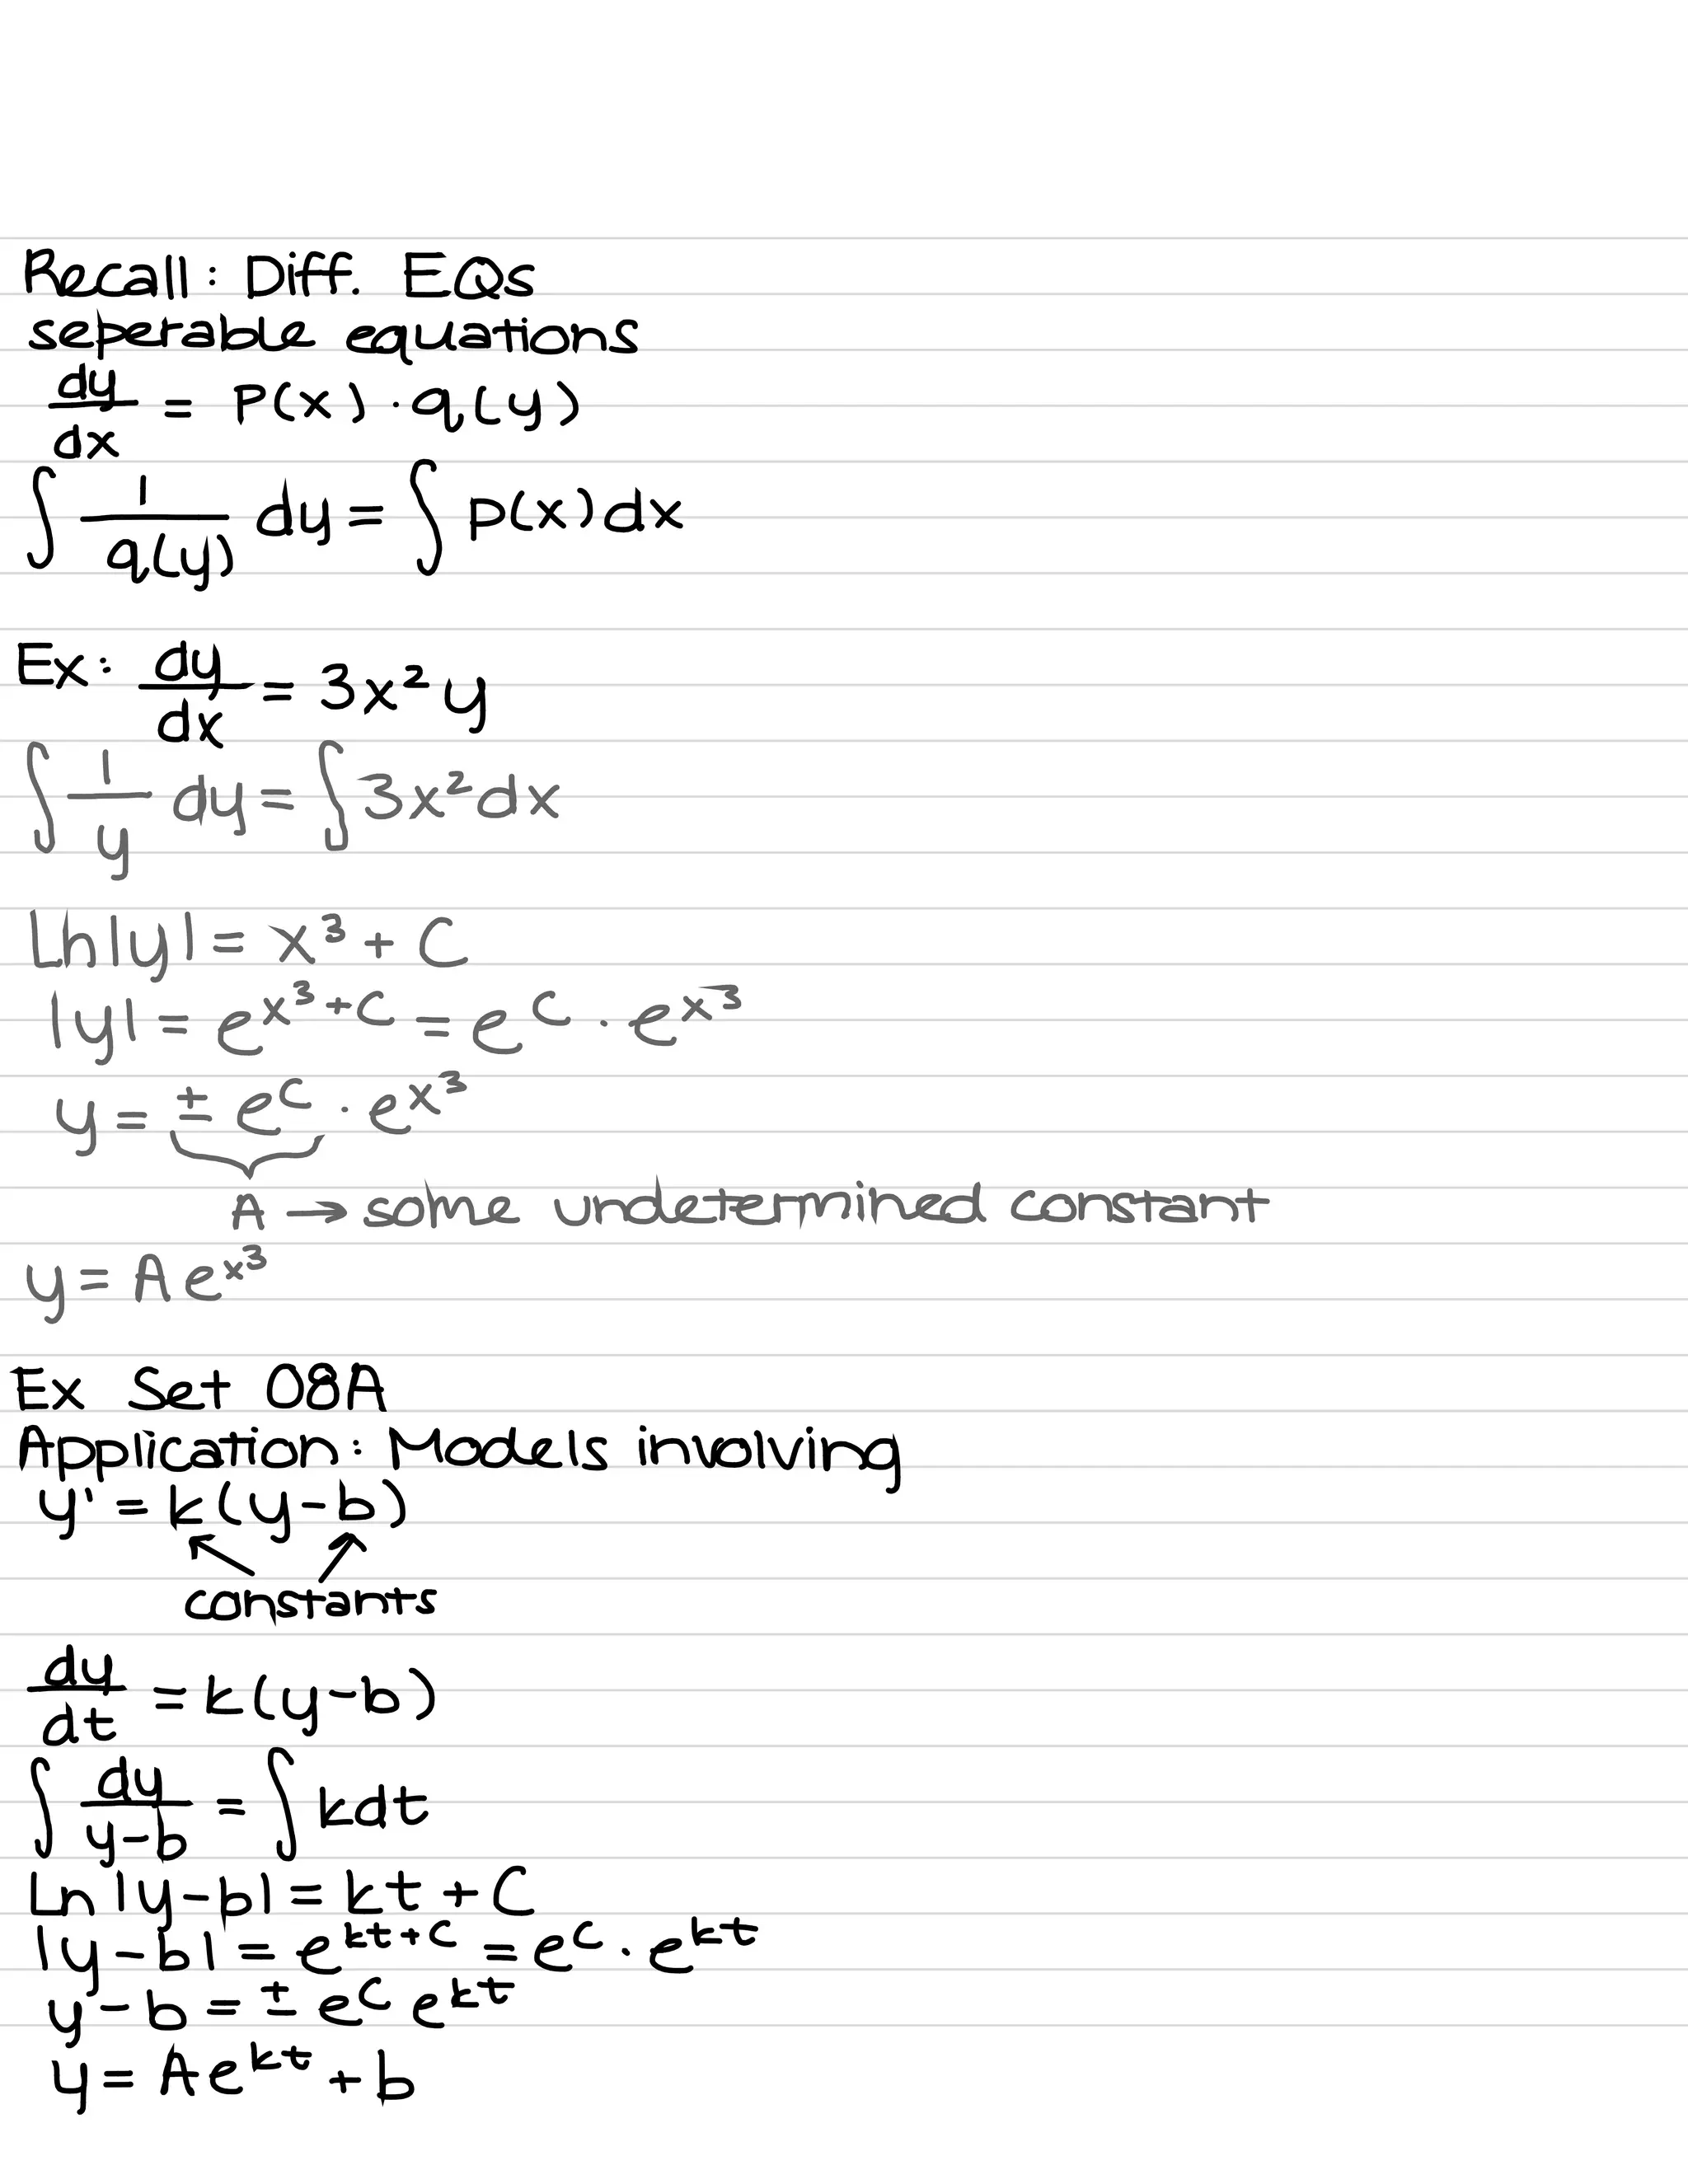 Recall: Diff. EQs
seperable equations
dy/dx = P(x) · q(y)
∫ 1/q(y) dy = ∫ p(x) dx
Ex: dy/dx = 3x² y
∫ 1/y dy = ∫ 3x² dx
Ln|y| = x³ + C
|y| = e^(x³+C) = e^C · e^(x³)
y = ± e^C · e^(x³)
A → some undetermined constant
y = A e^(x³)
Ex Set 08A
Application: Models involving
y' = k(y-b)
constants
dy/dt = k(y-b)
∫ dy/(y-b) = ∫ kdt
Ln|y-b| = kt + C
|y-b| = e^(kt+C) = e^C · e^(kt)
y-b = ± e^C e^(kt)
y = Ae^(kt) + b